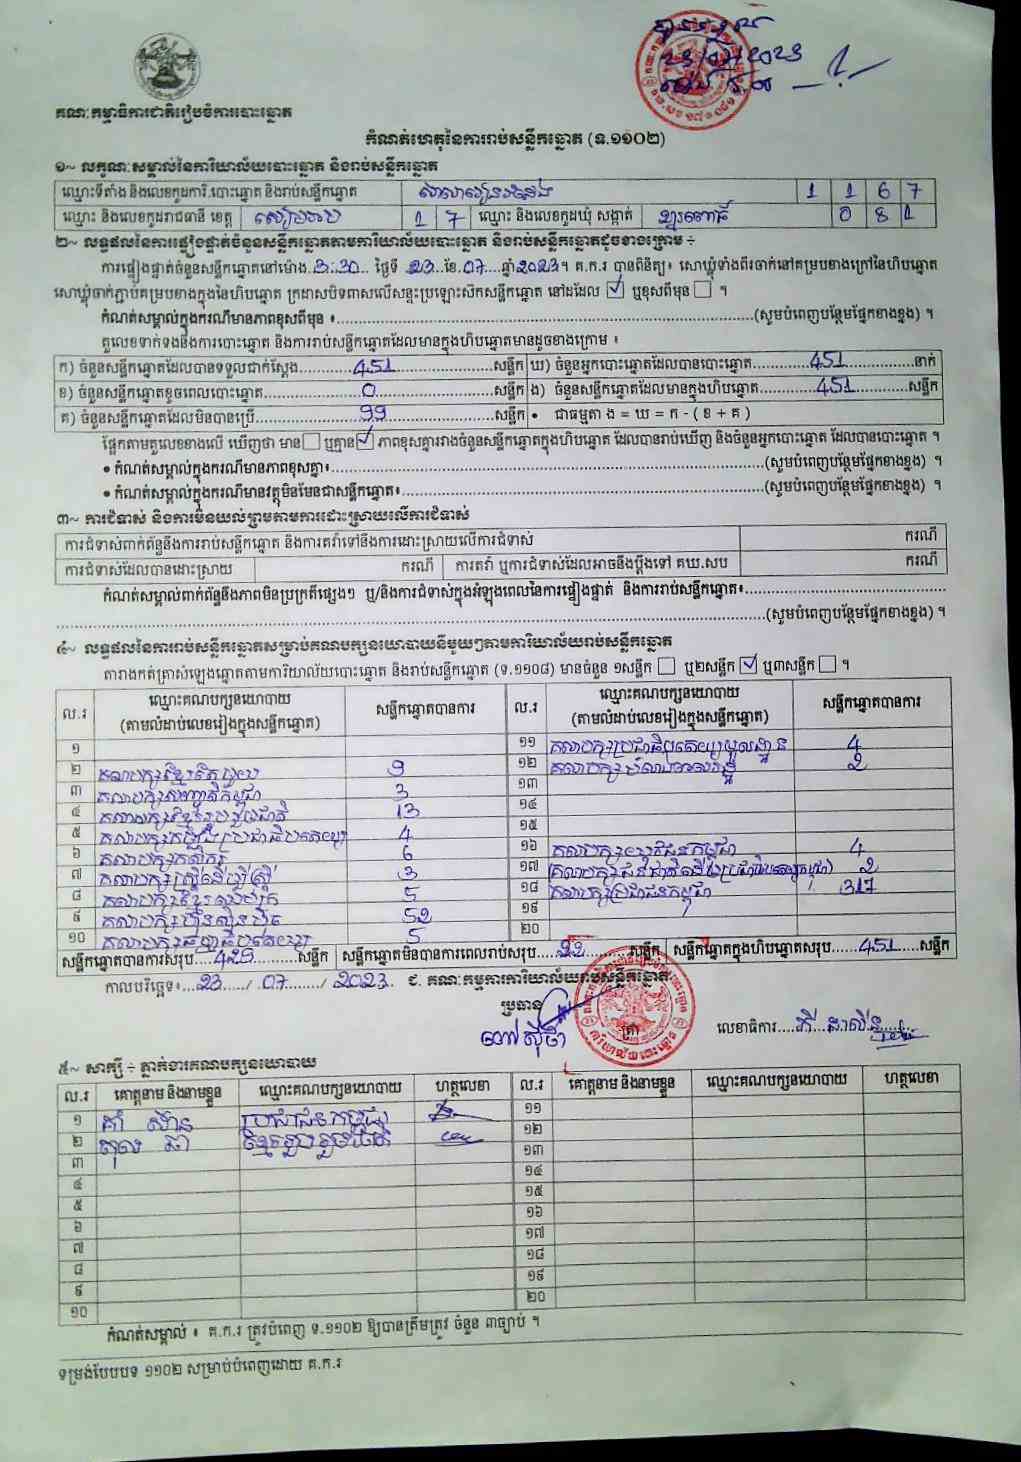 បានទទួល
23/07/2023
គណៈកម្មាធិការជាតិរៀបចំការបោះឆ្នោត
កំណត់ហេតុនៃការរាប់សន្លឹកឆ្នោត (ទ.១១០២)
១~ លក្ខណៈសម្គាល់នៃការិយាល័យបោះឆ្នោត និងរាប់សន្លឹកឆ្នោត
ឈ្មោះទីតាំង និងលេខកូដការិ.បោះឆ្នោត និងរាប់សន្លឹកឆ្នោត 1 1 6 7
ឈ្មោះ និងលេខកូដរាជធានី ខេត្ត សៀមរាប 1 7 ឈ្មោះ និងលេខកូដឃុំ សង្កាត់ 0 8 1
២~ លទ្ធផលនៃការផ្ទៀងផ្ទាត់ចំនួនសន្លឹកឆ្នោតតាមការិយាល័យបោះឆ្នោត និងរាប់សន្លឹកឆ្នោតដូចខាងក្រោម ÷
ការផ្ទៀងផ្ទាត់ចំនួនសន្លឹកឆ្នោតនៅម៉ោង.3:30.. ថ្ងៃទី .23..ខែ.07....ឆ្នាំ2023។ គ.ក.រ បានពិនិត្យ៖ សោឃ្លុំទាំងពីរចាក់នៅគម្របខាងក្រៅនៃហិបឆ្នោត
សោឃ្លុំចាក់ភ្ជាប់គម្របខាងក្នុងនៃហិបឆ្នោត ក្រដាសបិទពាសលើសន្ទះប្រឡោះសិកសន្លឹកឆ្នោត នៅដដែល ☑ ឬខុសពីមុន ☐ ។
កំណត់សម្គាល់ក្នុងករណីមានភាពខុសពីមុន ៖....................(សូមបំពេញបន្ថែមផ្នែកខាងខ្នង) ។
តួលេខទាក់ទងនឹងការបោះឆ្នោត និងការរាប់សន្លឹកឆ្នោតដែលមានក្នុងហិបឆ្នោតមានដូចខាងក្រោម ៖
ក) ចំនួនសន្លឹកឆ្នោតដែលបានទទួលជាក់ស្តែង..........451..........សន្លឹក ឃ) ចំនួនអ្នកបោះឆ្នោតដែលបានបោះឆ្នោត..........451..........នាក់
ខ) ចំនួនសន្លឹកឆ្នោតខូចពេលបោះឆ្នោត..........0..........សន្លឹក ង) ចំនួនសន្លឹកឆ្នោតដែលមានក្នុងហិបឆ្នោត..........451..........សន្លឹក
គ) ចំនួនសន្លឹកឆ្នោតដែលមិនបានប្រើ..........99..........សន្លឹក • ជាធម្មតា ង = ឃ = ក - ( ខ + គ )
ផ្អែកតាមតួលេខខាងលើ ឃើញថា មាន ☐ ឬគ្មាន ☑ ភាពខុសគ្នារវាងចំនួនសន្លឹកឆ្នោតក្នុងហិបឆ្នោត ដែលបានរាប់ឃើញ និងចំនួនអ្នកបោះឆ្នោត ដែលបានបោះឆ្នោត ។
• កំណត់សម្គាល់ក្នុងករណីមានភាពខុសគ្នា៖....................(សូមបំពេញបន្ថែមផ្នែកខាងខ្នង) ។
• កំណត់សម្គាល់ក្នុងករណីមានវត្ថុមិនមែនជាសន្លឹកឆ្នោត៖....................(សូមបំពេញបន្ថែមផ្នែកខាងខ្នង) ។
៣~ ការជំទាស់ និងការមិនយល់ព្រមតាមការដោះស្រាយលើការជំទាស់
ការជំទាស់ពាក់ព័ន្ធនឹងការរាប់សន្លឹកឆ្នោត និងការតវ៉ាទៅនឹងការដោះស្រាយលើការជំទាស់ ករណី
ការជំទាស់ដែលបានដោះស្រាយ ករណី ការតវ៉ា ឬការជំទាស់ដែលអាចនឹងប្តឹងទៅ គឃ.សប ករណី
កំណត់សម្គាល់ពាក់ព័ន្ធនឹងភាពមិនប្រក្រតីផ្សេងៗ ឬ/និងការជំទាស់ក្នុងអំឡុងពេលនៃការផ្ទៀងផ្ទាត់ និងការរាប់សន្លឹកឆ្នោត៖....................
....................(សូមបំពេញបន្ថែមផ្នែកខាងខ្នង) ។
៤~ លទ្ធផលនៃការរាប់សន្លឹកឆ្នោតសម្រាប់គណបក្សនយោបាយនីមួយៗតាមការិយាល័យរាប់សន្លឹកឆ្នោត
តារាងកត់ត្រាសំឡេងឆ្នោតតាមការិយាល័យបោះឆ្នោត និងរាប់សន្លឹកឆ្នោត (ទ.១១០៨) មានចំនួន ១សន្លឹក ☐ ឬ២សន្លឹក ☑ ឬ៣សន្លឹក ☐ ។
ល.រ ឈ្មោះគណបក្សនយោបាយ សន្លឹកឆ្នោតបានការ ល.រ ឈ្មោះគណបក្សនយោបាយ សន្លឹកឆ្នោតបានការ
(តាមលំដាប់លេខរៀងក្នុងសន្លឹកឆ្នោត) (តាមលំដាប់លេខរៀងក្នុងសន្លឹកឆ្នោត)
១ ១១ គណបក្សប្រជាធិបតេយ្យមូលដ្ឋាន 4
២ គណបក្សខ្មែរតែមួយ 9 ១២ 2
៣ គណបក្សសញ្ជាតិកម្ពុជា 3 ១៣
៤ គណបក្សខ្មែររួបរួមជាតិ 13 ១៤
៥ គណបក្សកម្លាំងប្រជាធិបតេយ្យ 4 ១៥
៦ គណបក្សកសិករ 6 ១៦ គណបក្សយុវជនកម្ពុជា 4
៧ គណបក្សស្ត្រីដើម្បីស្ត្រី 3 ១៧ 2
៨ គណបក្សខ្មែរអភិរក្ស 5 ១៨ គណបក្សប្រជាជនកម្ពុជា 317
៩ គណបក្សហ៊្វុនស៊ិនប៉ិច 52 ១៩
១០ គណបក្សធម្មាធិបតេយ្យ 5 ២០
សន្លឹកឆ្នោតបានការសរុប.....429.....សន្លឹក សន្លឹកឆ្នោតមិនបានការពេលរាប់សរុប....22....សន្លឹក សន្លឹកឆ្នោតក្នុងហិបឆ្នោតសរុប......451.....សន្លឹក
កាលបរិច្ឆេទ៖...23...../...07......./...2023.. ជ. គណៈកម្មការការិយាល័យរាប់សន្លឹកឆ្នោត
ប្រធាន
ត្រា
លេខាធិការ....
៥~ សាក្សី ÷ ភ្នាក់ងារគណបក្សនយោបាយ
ល.រ គោត្តនាម និងនាមខ្លួន ឈ្មោះគណបក្សនយោបាយ ហត្ថលេខា ល.រ គោត្តនាម និងនាមខ្លួន ឈ្មោះគណបក្សនយោបាយ ហត្ថលេខា
១ ប្រជាជនកម្ពុជា ១១
២ ខ្មែររួបរួមជាតិ ១២
៣ ១៣
៤ ១៤
៥ ១៥
៦ ១៦
៧ ១៧
៨ ១៨
៩ ១៩
១០ ២០
កំណត់សម្គាល់ ៖ គ.ក.រ ត្រូវបំពេញ ទ.១១០២ ឱ្យបានត្រឹមត្រូវ ចំនួន ៣ច្បាប់ ។
ទម្រង់បែបបទ ១១០២ សម្រាប់បំពេញដោយ គ.ក.រ